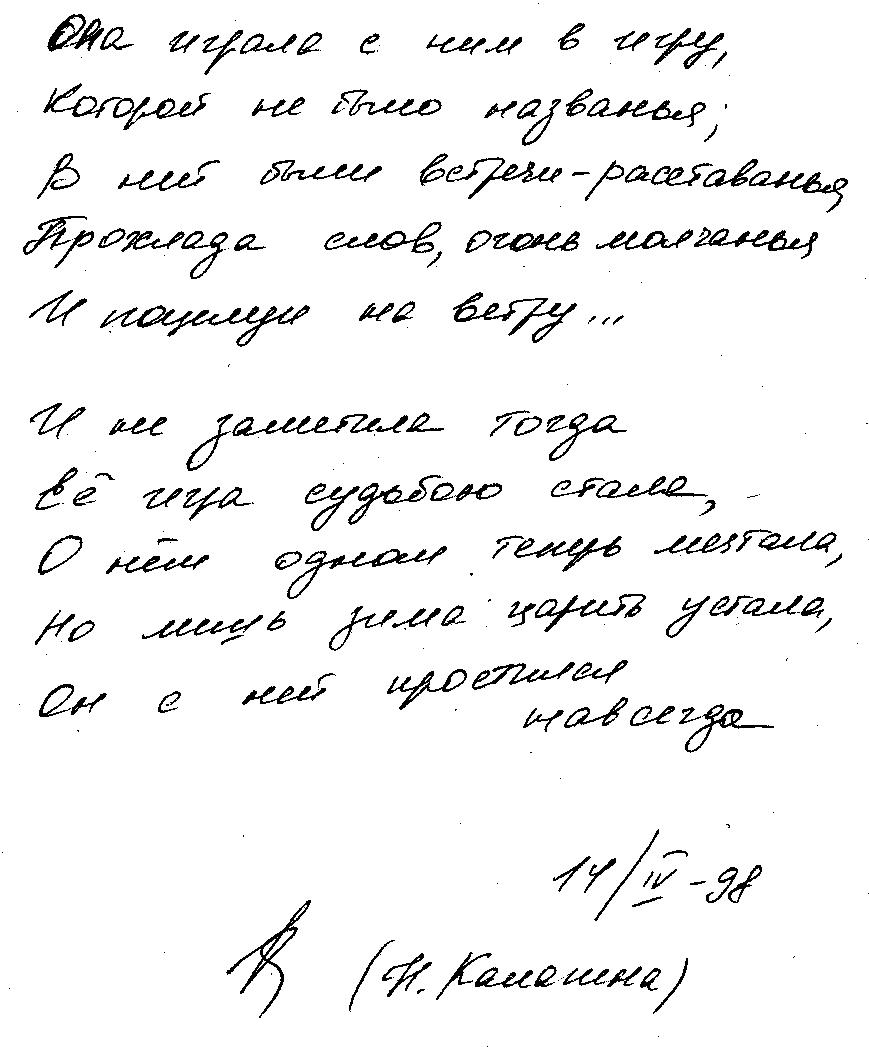 Она играла с ним в игру,
Которой не было названья;
В ней были встречи-расставанья,
Прохлада слов, огонь молчанья
И поцелуи на ветру...
И не заметила тогда
Её игра судьбою стала,
О нём одном теперь мечтала,
Но лишь зима царить устала,
Он с ней простился
навсегда
14/IV-98
(Н. Калашна)